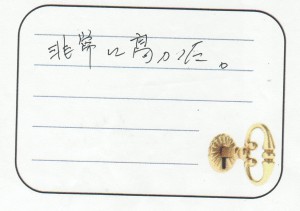 非常に高かった。